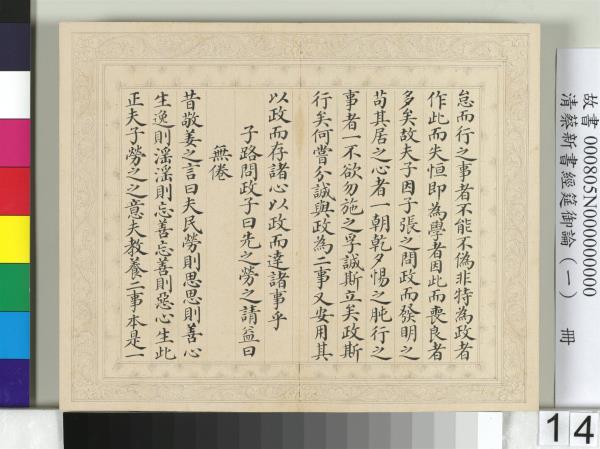 怠而行之事者不能不偽非特為政者
作此而失恒即為學者因此而喪良者
多矣故夫子因子張之問政而發明之
苟其居之心者一朝乾夕惕之肫行之
事者一不欲勿施之孚誠斯立矣政斯
行矣何嘗分誠與政為二事又安用其
以政而存諸心以政而達諸事乎
子路問政子曰先之勞之請益曰
無倦
昔敬姜之言曰夫民勞則思思則善心
生逸則淫淫則忘善忘善則惡心生此
正夫子勞之之意夫教養二事本是一
故書 000805N000000000
清蔡新書經筵御論(一) 冊
14